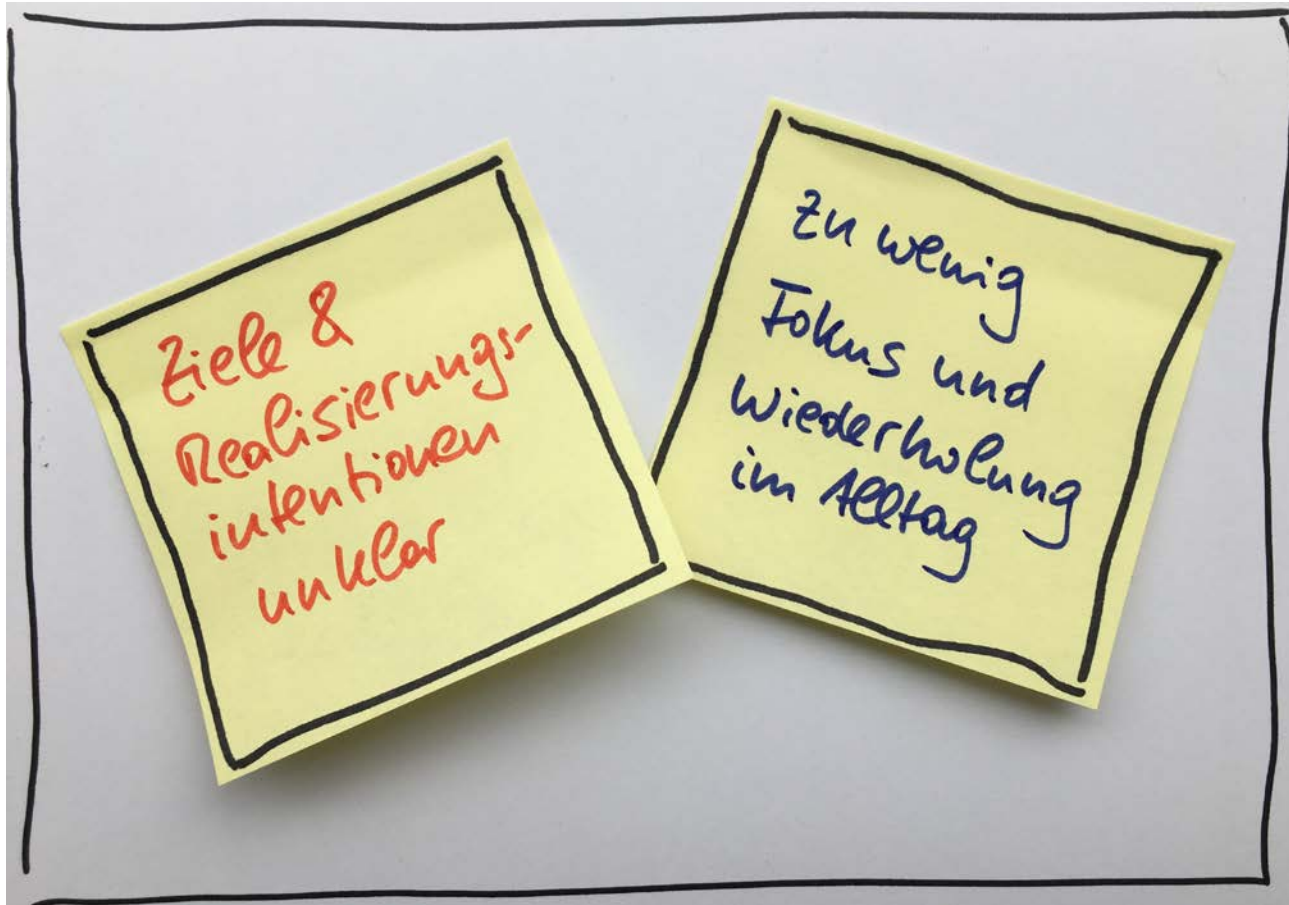 Ziele &
Realisierungs-
intentionen
unklar
Zu wenig
Fokus und
Wiederholung
im Alltag